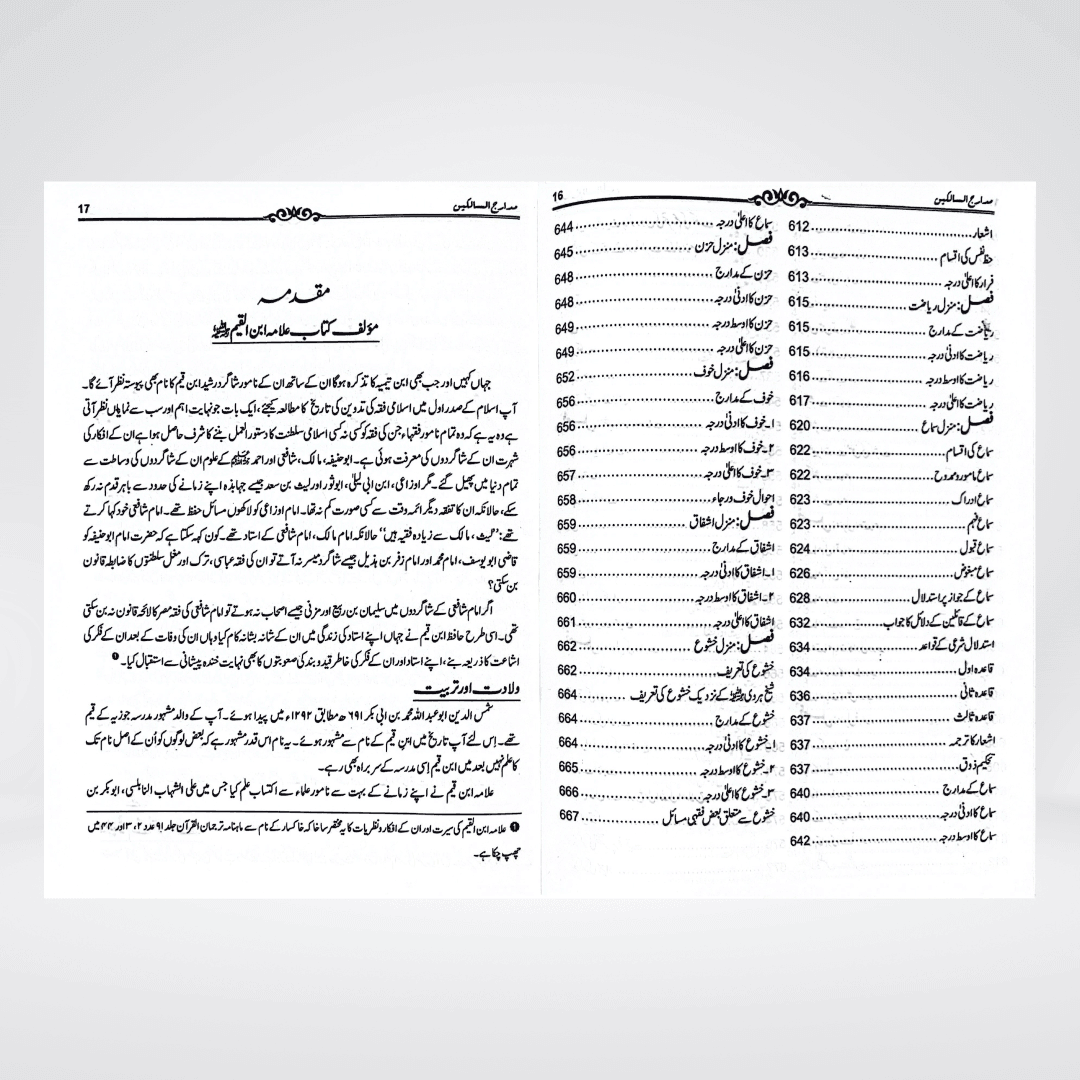 مدارج السالکین
16
اشعار 612
حظ نفس کی اقسام 613
فرار کا اعلیٰ درجہ 613
فصل: منزل ریاضت 615
ریاضت کے مدارج 615
ریاضت کا ادنیٰ درجہ 615
ریاضت کا اوسط درجہ 616
ریاضت کا اعلیٰ درجہ 617
فصل: منزل سماع 620
سماع کی اقسام 622
سماع مامور و ممدوح 622
سماع ادراک 623
سماع فہم 623
سماع قبول 624
سماع مبغوض 626
سماع کے جواز پر استدلال 628
سماع کے قائلین کے دلائل کا جواب 632
استدلال شرعی کے قواعد 634
قاعدہ اول 634
قاعدہ ثانی 636
قاعدہ ثالث 637
اشعار کا ترجمہ 637
تحکیم ذوق 637
سماع کے مدارج 640
سماع کا ادنیٰ درجہ 640
سماع کا اوسط درجہ 642
سماع کا اعلیٰ درجہ 644
فصل: منزل حزن 645
حزن کے مدارج 648
حزن کا ادنیٰ درجہ 648
حزن کا اوسط درجہ 649
حزن کا اعلیٰ درجہ 649
فصل: منزل خوف 652
خوف کے مدارج 656
۱۔ خوف کا ادنیٰ درجہ 656
۲۔ خوف کا اوسط درجہ 656
۳۔ خوف کا اعلیٰ درجہ 657
احوال خوف و رجاء 658
فصل: منزل اشفاق 659
اشفاق کے مدارج 659
۱۔ اشفاق کا ادنیٰ درجہ 659
۲۔ اشفاق کا اوسط درجہ 660
اشفاق کا اعلیٰ درجہ 661
فصل: منزل خشوع 662
خشوع کی تعریف 662
شیخ ہروی رحمہ اللہ کے نزدیک خشوع کی تعریف 664
خشوع کے مدارج 664
۱۔ خشوع کا ادنیٰ درجہ 664
۲۔ خشوع کا اوسط درجہ 665
۳۔ خشوع کا اعلیٰ درجہ 666
خشوع سے متعلق بعض فقہی مسائل 667
مدارج السالکین
17
مقدمہ
مؤلف کتاب علامہ ابن القیم رحمہ اللہ
جہاں کہیں اور جب بھی ابن تیمیہ کا تذکرہ ہوگا ان کے ساتھ ان کے نامور شاگرد رشید ابن قیم کا نام بھی پیوستہ نظر آئے گا۔
آپ اسلام کے صدر اول میں اسلامی فقہ کی تدوین کی تاریخ کا مطالعہ کیجئے، ایک بات جو نہایت اہم اور سب سے نمایاں نظر آتی
ہے وہ یہ ہے کہ وہ تمام نامور فقہاء جن کی فقہ کو کسی نہ کسی اسلامی سلطنت کا دستور العمل بننے کا شرف حاصل ہوا ہے ان کے افکار کی
شہرت ان کے شاگردوں کی معرفت ہوئی ہے۔ ابوحنیفہ، مالک، شافعی اور احمد رحمہم اللہ کے علوم ان کے شاگردوں کی وساطت سے
تمام دنیا میں پھیل گئے۔ مگر اوزاعی، ابن ابی لیلیٰ، ابوثور اور لیث بن سعد جیسے جہابذہ اپنے زمانے کی حدود سے باہر قدم نہ رکھ
سکے، حالانکہ ان کا تفقہ دیگر ائمہ وقت سے کسی صورت کم نہ تھا۔ امام اوزاعی کو لاکھوں مسائل حفظ تھے۔ امام شافعی خود کہا کرتے
تھے: ’’لیث، مالک سے زیادہ فقیہ ہیں‘‘ حالانکہ امام مالک، امام شافعی کے استاد تھے۔ کون کہہ سکتا ہے کہ حضرت امام ابوحنیفہ کو
قاضی ابو یوسف، امام محمد اور امام زفر بن ہذیل جیسے شاگرد میسر نہ آتے تو ان کی فقہ عباسی، ترک اور مغل سلطنتوں کا ضابطہ قانون
بن سکتی؟
اگر امام شافعی کے شاگردوں میں سلیمان بن ربیع اور مزنی جیسے اصحاب نہ ہوتے تو امام شافعی کی فقہ مصر کا لائحہ قانون نہ بن سکتی
تھی۔ اسی طرح حافظ ابن قیم نے جہاں اپنے استاد کی زندگی میں ان کے شانہ بشانہ کام کیا وہاں ان کی وفات کے بعد ان کے فکر کی
اشاعت کا ذریعہ بنے، اپنے استاد اور ان کے فکر کی خاطر قید و بند کی صعوبتوں کا بھی نہایت خندہ پیشانی سے استقبال کیا۔ ❶
ولادت اور تربیت
شمس الدین ابو عبداللہ محمد بن ابی بکر ۶۹۱ھ مطابق ۱۲۹۲ء میں پیدا ہوئے۔ آپ کے والد مشہور مدرسہ جوزیہ کے قیم
تھے۔ اِس لئے آپ تاریخ میں ابنِ قیم کے نام سے مشہور ہوئے۔ یہ نام اس قدر مشہور ہے کہ بعض لوگوں کو اُن کے اصل نام تک
کا علم نہیں بعد میں ابن قیم اِسی مدرسہ کے سربراہ بھی رہے۔
علامہ ابن قیم نے اپنے زمانے کے بہت سے نامور علماء سے اکتساب علم کیا جس میں علی الشہاب النابلسی، ابوبکر بن
❶ علامہ ابن القیم کی سیرت اور ان کے افکار و نظریات کا یہ مختصر سا خاکہ خاکسار کے نام سے ماہنامہ ترجمان القرآن جلد ۹۱ عدد ۲، ۳ اور ۴۴ میں
چھپ چکا ہے۔